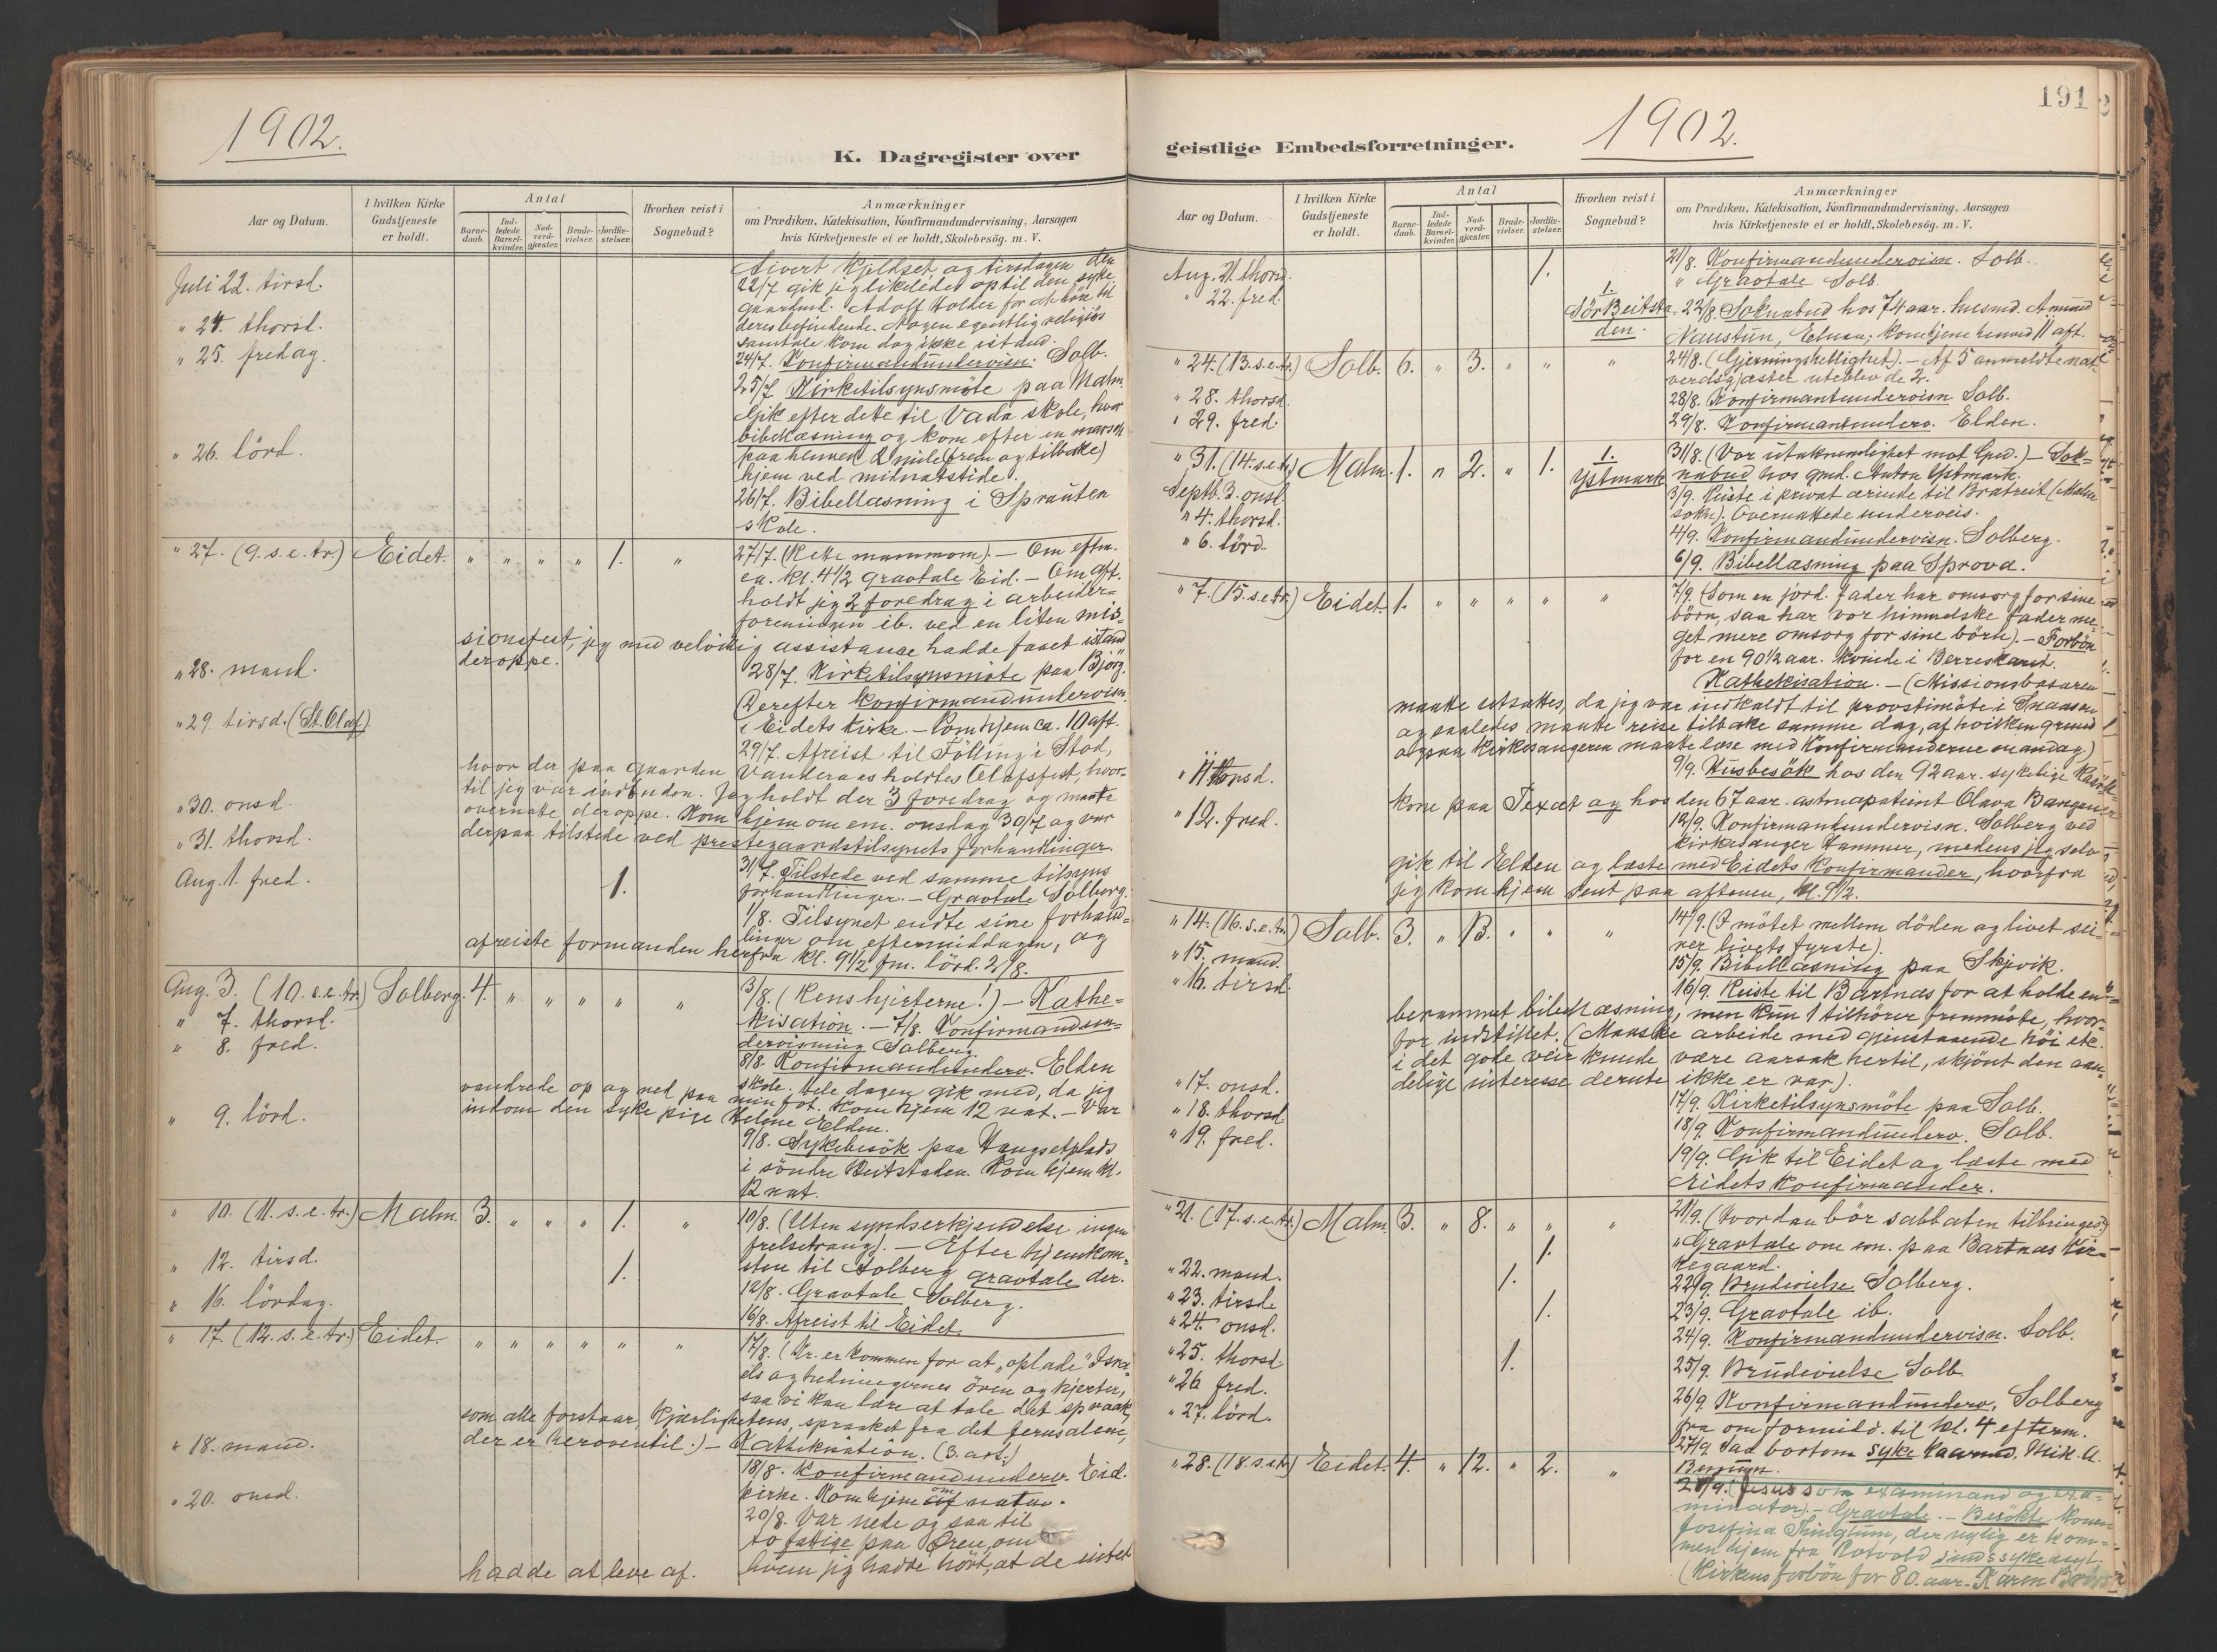 1902.
K. Dagregister over
Aar og Datum.
I hvilken Kirke Gudstjeneste er holdt.
Antal
Barnedaab.
Indledede Barselkvinder.
Nadverdgjæster.
Brudevielser.
Jordfæstelser.
Hvorhen reist i Sognebud?
Anmærkninger
om Prædiken, Katekisation, Konfirmandundervisning, Aarsagen
hvis Kirketjeneste ei er holdt, Skolebesøg. m. V.
Juli 22. tirsd.
Sivert Kjeldset, og tirsdagen den
22/7 gik jeg likeledes op til den syke
gaardmd. Adolf Holder for at höre til
deres befindende. Nogen egentlig religiös
samtale kom dog ikke istand.
" 24. thorsd.
24/7. Konfirmandundervisn. Solb.
" 25. fredag.
25/7 Kirketilsynsmöte paa Malm.
Gik efter dette til Vada skole, hvor
bibellæsning og kom efter en marsch
paa henved 2 mile (frem og tilbake)
hjem ved midnatstide.
" 26. lörd.
26/7. Bibellæsning i Sprauten
skole.
" 27. (9. s. e. tr.) Eidet. " " " " 1. "
27/7. (Rette mammom). — Om eftm.
ca. kl. 4 1/2 gravtale Eid. — Om aft.
holdt jeg 2 foredrag i arbeider=
foreningen ib. ved en liten mis=
sionsfest, jeg med velvillig assistance hadde faaet istand
deroppe.
" 28. mand.
28/7. Kirketilsynsmöte paa Björg.
Derefter Konfirmandundervisn.
i Eidets kirke. — Kom hjem ca. 10 aft.
" 29 tirsd. (St. Olaf)
29/7. Afreist til Fölling i Stod,
hvor der paa gaarden Vanderaas holdtes Olafsfest, hvor=
til jeg var indbuden. Jeg holdt der 3 foredrag og maatte
overnatte deroppe. Kom hjem om em. onsdag 30/7 og var
derpaa tilstede ved prestegaardstilsynets forhandlinger.
" 30. onsd.
" 31. thorsd.
31/7. Tilstede ved samme tilsyns
forhandlinger. — Gravtale Solberg.
1.
Aug. 1. fred.
1/8. Tilsynet endte sine forhand=
linger om eftermiddagen, og
afreiste formanden herfra kl. 9 1/2 fm. lörd. 2/8.
Aug. 3. (10. s. e. tr.) Solberg. 4. " " " " "
3/8. (Rens hjerterne!) — Kathe=
kisation. — 7/8. Konfirmandun=
dervisning Solberg.
" 7. thorsd.
" 8. fred.
8/8. Konfirmandunderv. Elden
skole. Hele dagen gik med, da jeg
vandrede op og ned paa min fot. Kom hjem 12 nat. — Var
indom den syke pige Helene Elden.
" 9. lörd.
9/8. Sykebesök paa Haugsetplads
i söndre Beitstaden. Kom hjem kl.
12 nat.
" 10. (11. s. e. tr.) Malm. 3. " " " 1. "
10/8. (Uten syndserkjendelse ingen
frelsetrang). — Efter hjemkom=
sten til Solberg gravtale der.
" 12. tirsd. 1.
12/8. Gravtale Solberg.
" 16. lördag.
16/8. Afreist til Eidet.
" 17. (12. s. e. tr.) Eidet. " " " " " "
17/8. (Kr. er kommen for at „oplade" Isra=
els og hedningernes ören og hjerter,
saa vi kan lære at tale det spraak,
som alle forstaar, kjærlighetens, spraaket fra det Jerusalem,
der er heroventil.) — Kathekisation. (3. art.)
" 18. mand.
18/8. Konfirmandunderv. Eid.
kirke. Kom hjem om natten.
" 20. onsd.
20/8. Var nede og saa til
to fattige paa Øren, om
hvem jeg hadde hört, at de intet
hadde at leve af.
191
1902.
geistlige Embedsforretninger.
Aar og Datum.
I hvilken Kirke Gudstjeneste er holdt.
Antal
Barnedaab.
Indledede Barselkvinder.
Nadverdgjæster.
Brudevielser.
Jordfæstelser.
Hvorhen reist i Sognebud?
Anmærkninger
om Prædiken, Katekisation, Konfirmandundervisning, Aarsagen
hvis Kirketjeneste ei er holdt, Skolebesøg. m. V.
Aug. 21. thorsd. 1.
21/8. Konfirmandundervisn. Solb.
" Gravtale Solb.
" 22. fred. 1. Sör Beitstaden.
22/8. Soknebud hos 74 aar. husmd. Amund
Naustun, Elnan; kom hjem henved 11 aft.
" 24. (13. s. e. tr.) Solb. 6. " 3. " " "
24/8. (Gjerningshellighet). — Af 5 anmeldte nat=
verdsgjæster uteblev de 2.
" 28. thorsd.
28/8. Konfirmantundervisn Solb.
" 29. fred.
29/8. Konfirmantunderv. Elden.
" 31. (14. s. e. tr.) Malm. 1. " 2. " 1. 1. Ystmark
31/8. (Vor utaknemlighet mot Gud.) — Sok=
nebud hos gmd. Anton Ystmark.
Septb. 3. onsd.
3/9. Reiste i privat ærinde til Bratreit (Malm
sokn). Overnattede underveis.
" 4. thorsd.
4/9. Konfirmandundervisn. Solberg.
" 6. lörd.
6/9. Bibellæsning paa Sprova.
" 7. (15. s. e. tr.) Eidet. 1. " " " " "
7/9. (Som en jord. fader har omsorg for sine
börn, saa har vor himmelske fader me=
get mere omsorg for sine börn). — Forbön
for en 90 1/2 aar. kvinde i Berreskaret.
Kathekisation. — (Missionsbasaren
maatte utsættes, da jeg var indkaldt til provstimöte i Snaasen
og saaledes maatte reise tilbake samme dag, af hvilken grund
ogsaa kirkesangeren maatte læse med konfirmanderne mandag.)
9/9. Husbesök hos den 92 aar. sykelige
kone paa Texet og hos den 67 aar. astmapatient Olava Bangan
" 11. thorsd.
" 12. fred.
12/9. Konfirmandundervisn. Solberg ved
kirkesanger Hammer, medens jeg selv
gik til Elden og læste med Eidets Konfirmander, hvorfra
jeg kom hjem sent paa aftenen, kl. 9 1/2.
" 14. (16. s. e. tr.) Solb. 3. " 13. " " "
14/9. (I mötet mellem döden og livet sei=
rer livets fyrste).
" 15. mand.
15/9. Bibellæsning paa Skjevik.
" 16. tirsd.
16/9. Reiste til Bartnæs for at holde en
berammet bibellæsning, men kun 1 tilhörer fremmöte, hvor=
for indstillet. (Maaske arbeide med gjenstaaende höi etc.
i det gode veir kunde være aarsak hertil, skjönt den aan=
delige interesse derute ikke er rar).
" 17. onsd.
17/9. Kirketilsynsmöte paa Solb.
" 18. thorsd
18/9. Konfirmandunderv. Solb.
" 19. fred.
19/9. Gik til Eidet og læste med
Eidets konfirmander.
" 21. (17. s. e. tr.) Malm. 3. " 8. " " "
21/9. (Hvordan bör sabbaten tilbringes?)
1.
" Gravtale om em. paa Bartnæs kir=
kegaard.
" 22. mand. 1.
22/9. Brudevielse Solberg.
" 23. tirsd. 1.
23/9. Gravtale ib.
" 24. onsd.
24/9. Konfirmandundervisn. Solb.
" 25. thorsd. 1.
25/9. Brudevielse Solb.
" 26 fred.
26/9. Konfirmandunderv. Solberg
fra om formidd. til kl. 4 efterm.
" 27. lörd.
27/9. Saa bortom syke Mik. A.
" 28. (18. s. e. tr.) Eidet. 4. " 12. " 2. "
28/9. (Jesus som examinand og exa=
minator). — Gravtale. — Besökte konen
Josefina Tinglum, der nylig er kom=
men hjem fra Rotvold sindssykeasyl.
(Kirkens forbön for 80. aar. Karen